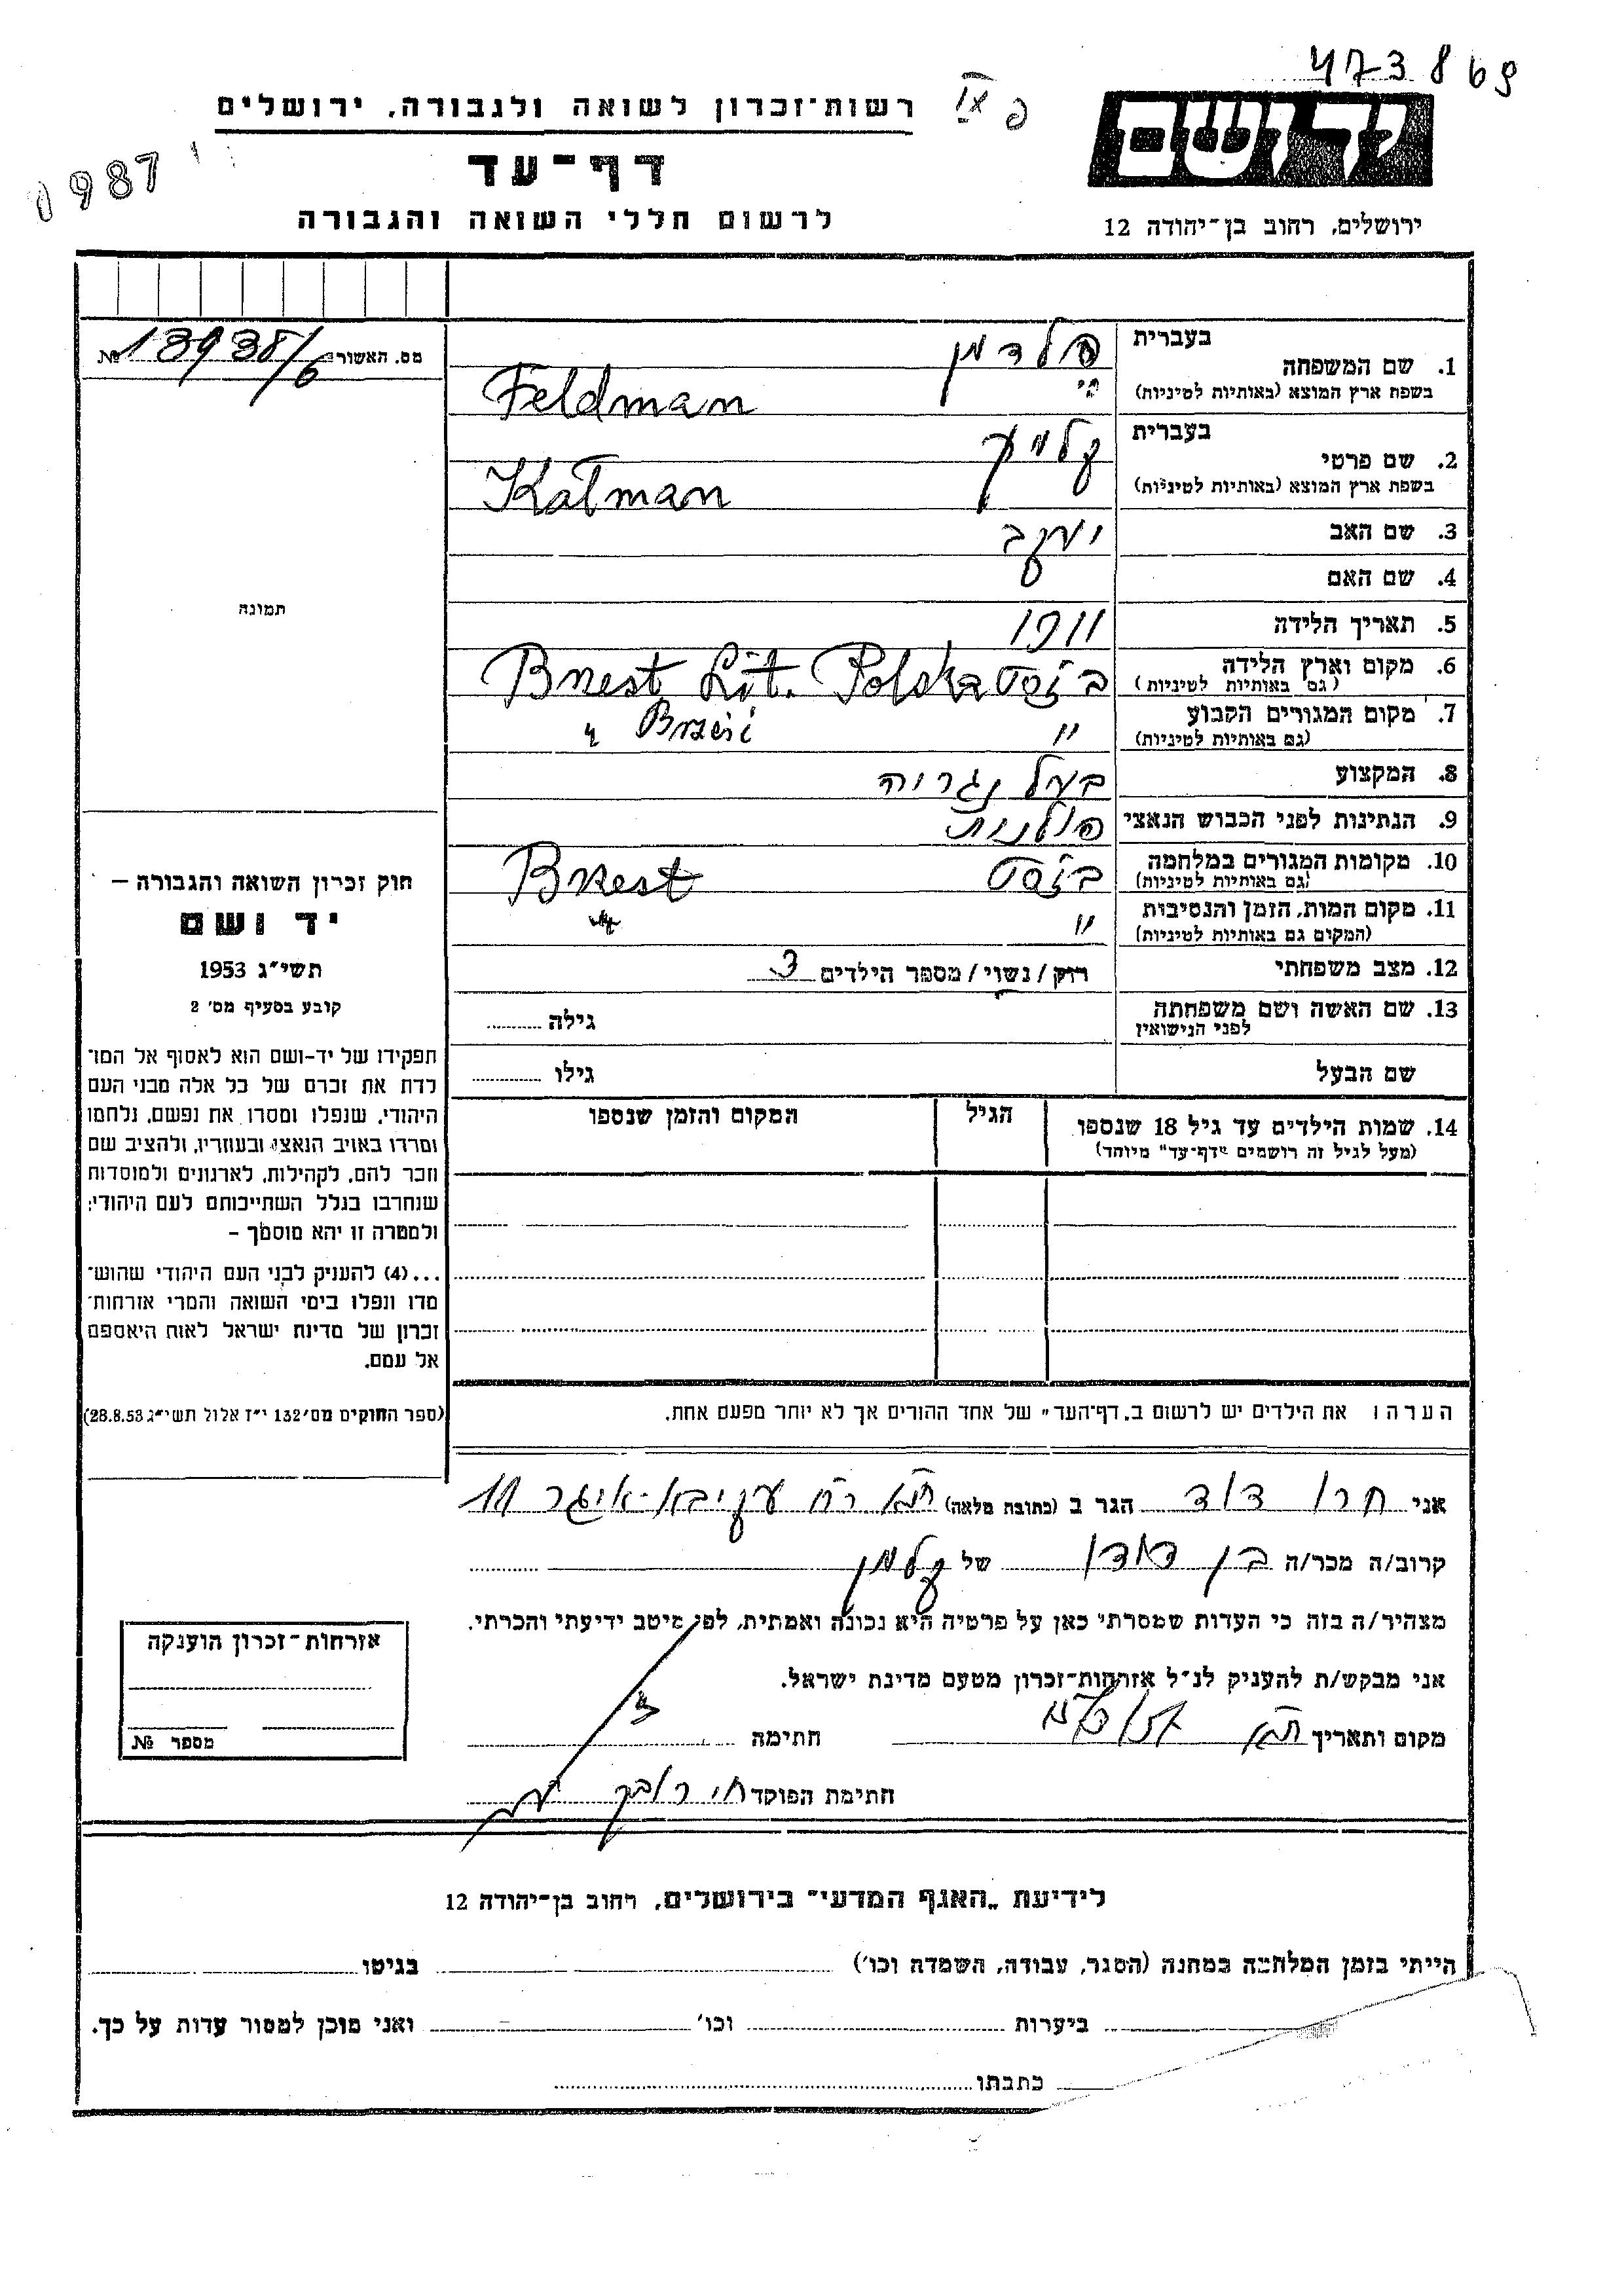 473869
רשות־זכרון לשואה ולגבורה, ירושלים
דף־עד
לרשום חללי השואה והגבורה
0987
יד ושם
ירושלים, רחוב בן־יהודה 12
מס. האשור 13938/6 №
תמונה
בעברית פלדמן
1. שם המשפחה
בשפת ארץ המוצא (באותיות לטיניות) Feldman
בעברית קלמן
2. שם פרטי
בשפת ארץ המוצא (באותיות לטיניות) Kalman
3. שם האב יעקב
4. שם האם
5. תאריך הלידה 1911
6. מקום וארץ הלידה
(גם באותיות לטיניות) בזסט Brzest Lit. Polska
7. מקום המגורים הקבוע
(גם באותיות לטיניות) " Brześć "
8. המקצוע בעל נגריה
9. הנתינות לפני הכבוש הנאצי פולנית
10. מקומות המגורים במלחמה
(גם באותיות לטיניות) Brzest
11. מקום המות, הזמן והנסיבות
(המקום גם באותיות לטיניות) " "
12. מצב משפחתי רוק/נשוי/מספר הילדים 3
13. שם האשה ושם משפחתה
לפני הנישואין גילה
שם הבעל גילו
14. שמות הילדים עד גיל 18 שנספו
(מעל לגיל זה רושמים "דף־עד" מיוחד)
הגיל
המקום והזמן שנספו
חוק זכרון השואה והגבורה –
יד ושם
תשי"ג 1953
קובע בסעיף מס' 2
תפקידו של יד-ושם הוא לאסוף אל המו־
לדת את זכרם של כל אלה מבני העם
היהודי, שנפלו ומסרו את נפשם, נלחמו
ומרדו באויב הנאצי ובעוזריו, ולהציב שם
וזכר להם, לקהילות, לארגונים ולמוסדות
שנחרבו בגלל השתייכותם לעם היהודי;
ולמטרה זו יהא מוסמך –
...(4) להעניק לבני העם היהודי שהוש־
מדו ונפלו בימי השואה והמרי אזרחות־
זכרון של מדינת ישראל לאות היאספם
אל עמם.
(ספר החוקים מס' 132 י"ז אלול תשי"ג 28.8.53)
הערה: את הילדים יש לרשום ב"דף־העד" של אחד ההורים אך לא יותר מפעם אחת.
אני דוד הגר ב (כתובת מלאה) ת"א רח' עקיבא-איגר 11
קרוב/ה מכר/ה בן דודו של קלמן
מצהיר/ה בזה כי העדות שמסרתי כאן על פרטיה היא נכונה ואמתית, לפי מיטב ידיעתי והכרתי.
אני מבקש/ת להעניק לנ"ל אזרחות־זכרון מטעם מדינת ישראל.
מקום ותאריך ת"א חתימה
חתימת הפוקד
אזרחות־זכרון הוענקה
מספר №
לידיעת "האגף המדעי" בירושלים, רחוב בן־יהודה 12
הייתי בזמן המלחמה במחנה (הסגר, עבודה, השמדה וכו') בגיטו
ביערות וכו' ואני מוכן למסור עדות על כך.
כתבתו